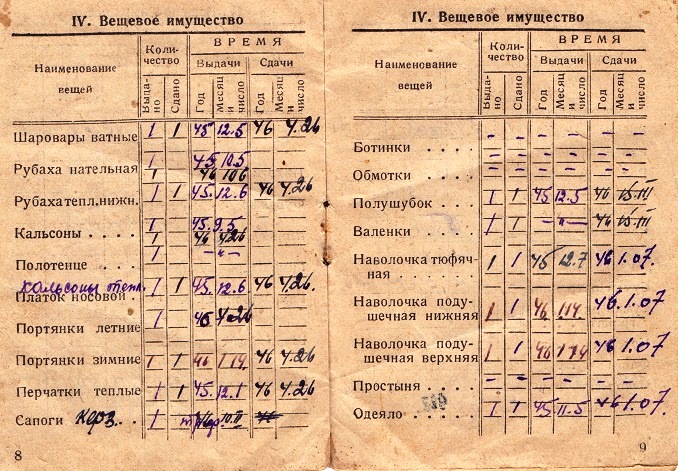 IV. Вещевое имущество
Наименование вещей
Коли-
чество
ВРЕМЯ
Выдачи
Сдачи
Выда-
но
Сдано
Год
Месяц и число
Год
Месяц и число
Шаровары ватные 1 1 45 12.5 46 4.26
Рубаха нательная 1 45 10.5
1 46 10 6
Рубаха тепл. нижн. 1 1 45. 12.6 46 4.26
Кальсоны . . . . 1 45. 9.5
1 46 4.26
Полотенце . . . 1 — „ —
Кальсоны тепл. 1 1 45. 12.6 46 4.26
Платок носовой .
Портянки летние 1 46 4-26
Портянки зимние 1 1 46 1.14 46 4.26
Перчатки теплые 1 1 45. 12.1 46 4.26
Сапоги керз. . . 1 46
8
IV. Вещевое имущество
Наименование
вещей
Коли-
чество
ВРЕМЯ
Выдачи
Сдачи
Выда-
но
Сдано
Год
Месяц и число
Год
Месяц и число
Ботинки . . . . - - - - - -
Обмотки . . . . - - - - - -
Полушубок . . . 1 1 45 12.5 46 15.III
Валенки . . . . 1 1 — „ — 46 15.III
Наволочка тюфяч-
ная . . . . . 1 1 45 12.7 46 1.07.
Наволочка поду-
шечная нижняя 1 1 46 1.14 46.1.07
Наволочка поду-
шечная верхняя 1 1 46 1 14 46 1.07
Простыня . . . . - - - - - -
Одеяло . . . . 1 1 45 11.5 46 1.07.
9